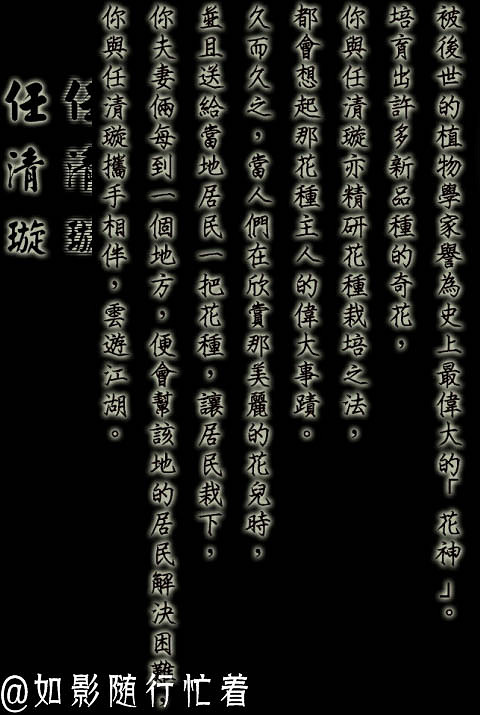 任清璇
你與任清璇攜手相伴，雲遊江湖。
你夫妻倆每到一個地方，便會幫該地的居民解決困難，
並且送給當地居民一把花種，讓居民栽下，
久而久之，當人們在欣賞那美麗的花兒時，
都會想起那花種主人的偉大事蹟。
你與任清璇亦精研花種栽培之法，
培育出許多新品種的奇花，
被後世的植物學家譽為史上最偉大的「花神」。
@如影随行忙着